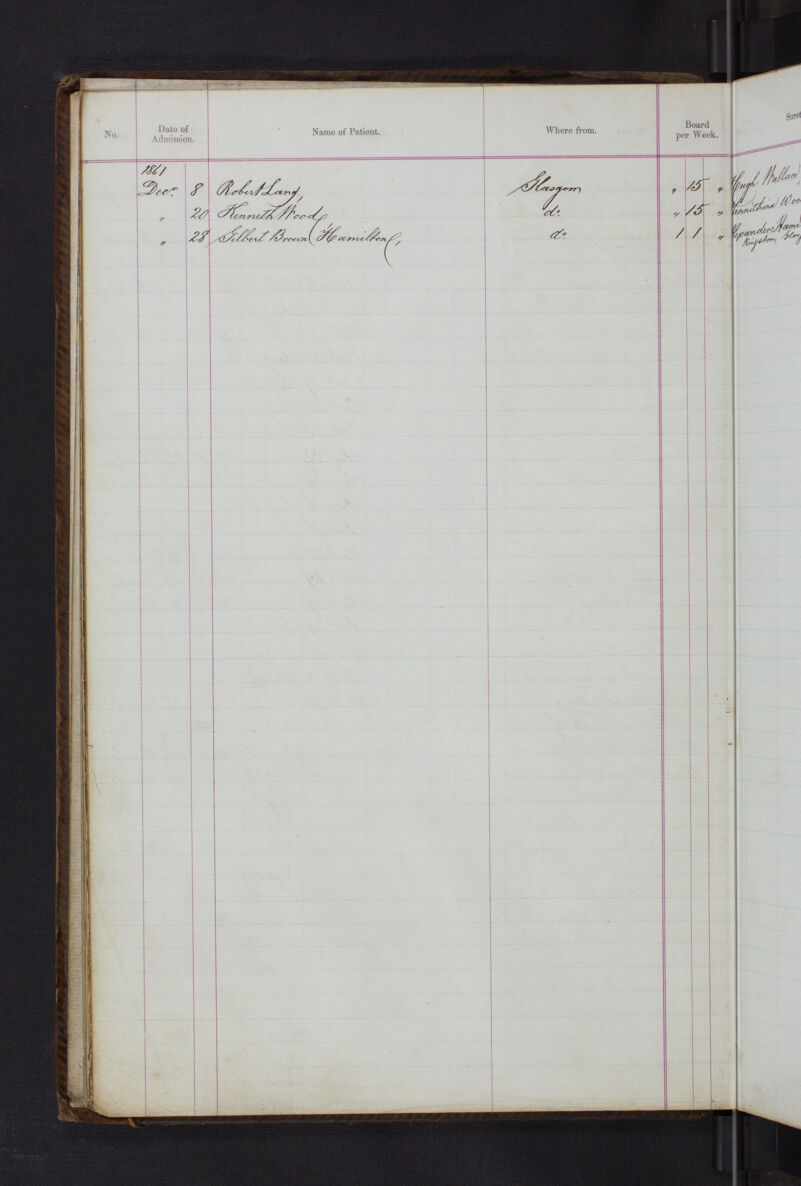 No. Date of Admission. Name of Patient. Where from. Board per Week.
1861
Decr. 8 Robert Lang, Glasgow " 15 " Hugh Wallace,
" 20 Kenneth Wood, do. " 15 "
" 28 Gilbert Brown Hamilton, do. 1 1 " Alexander
Kingston,